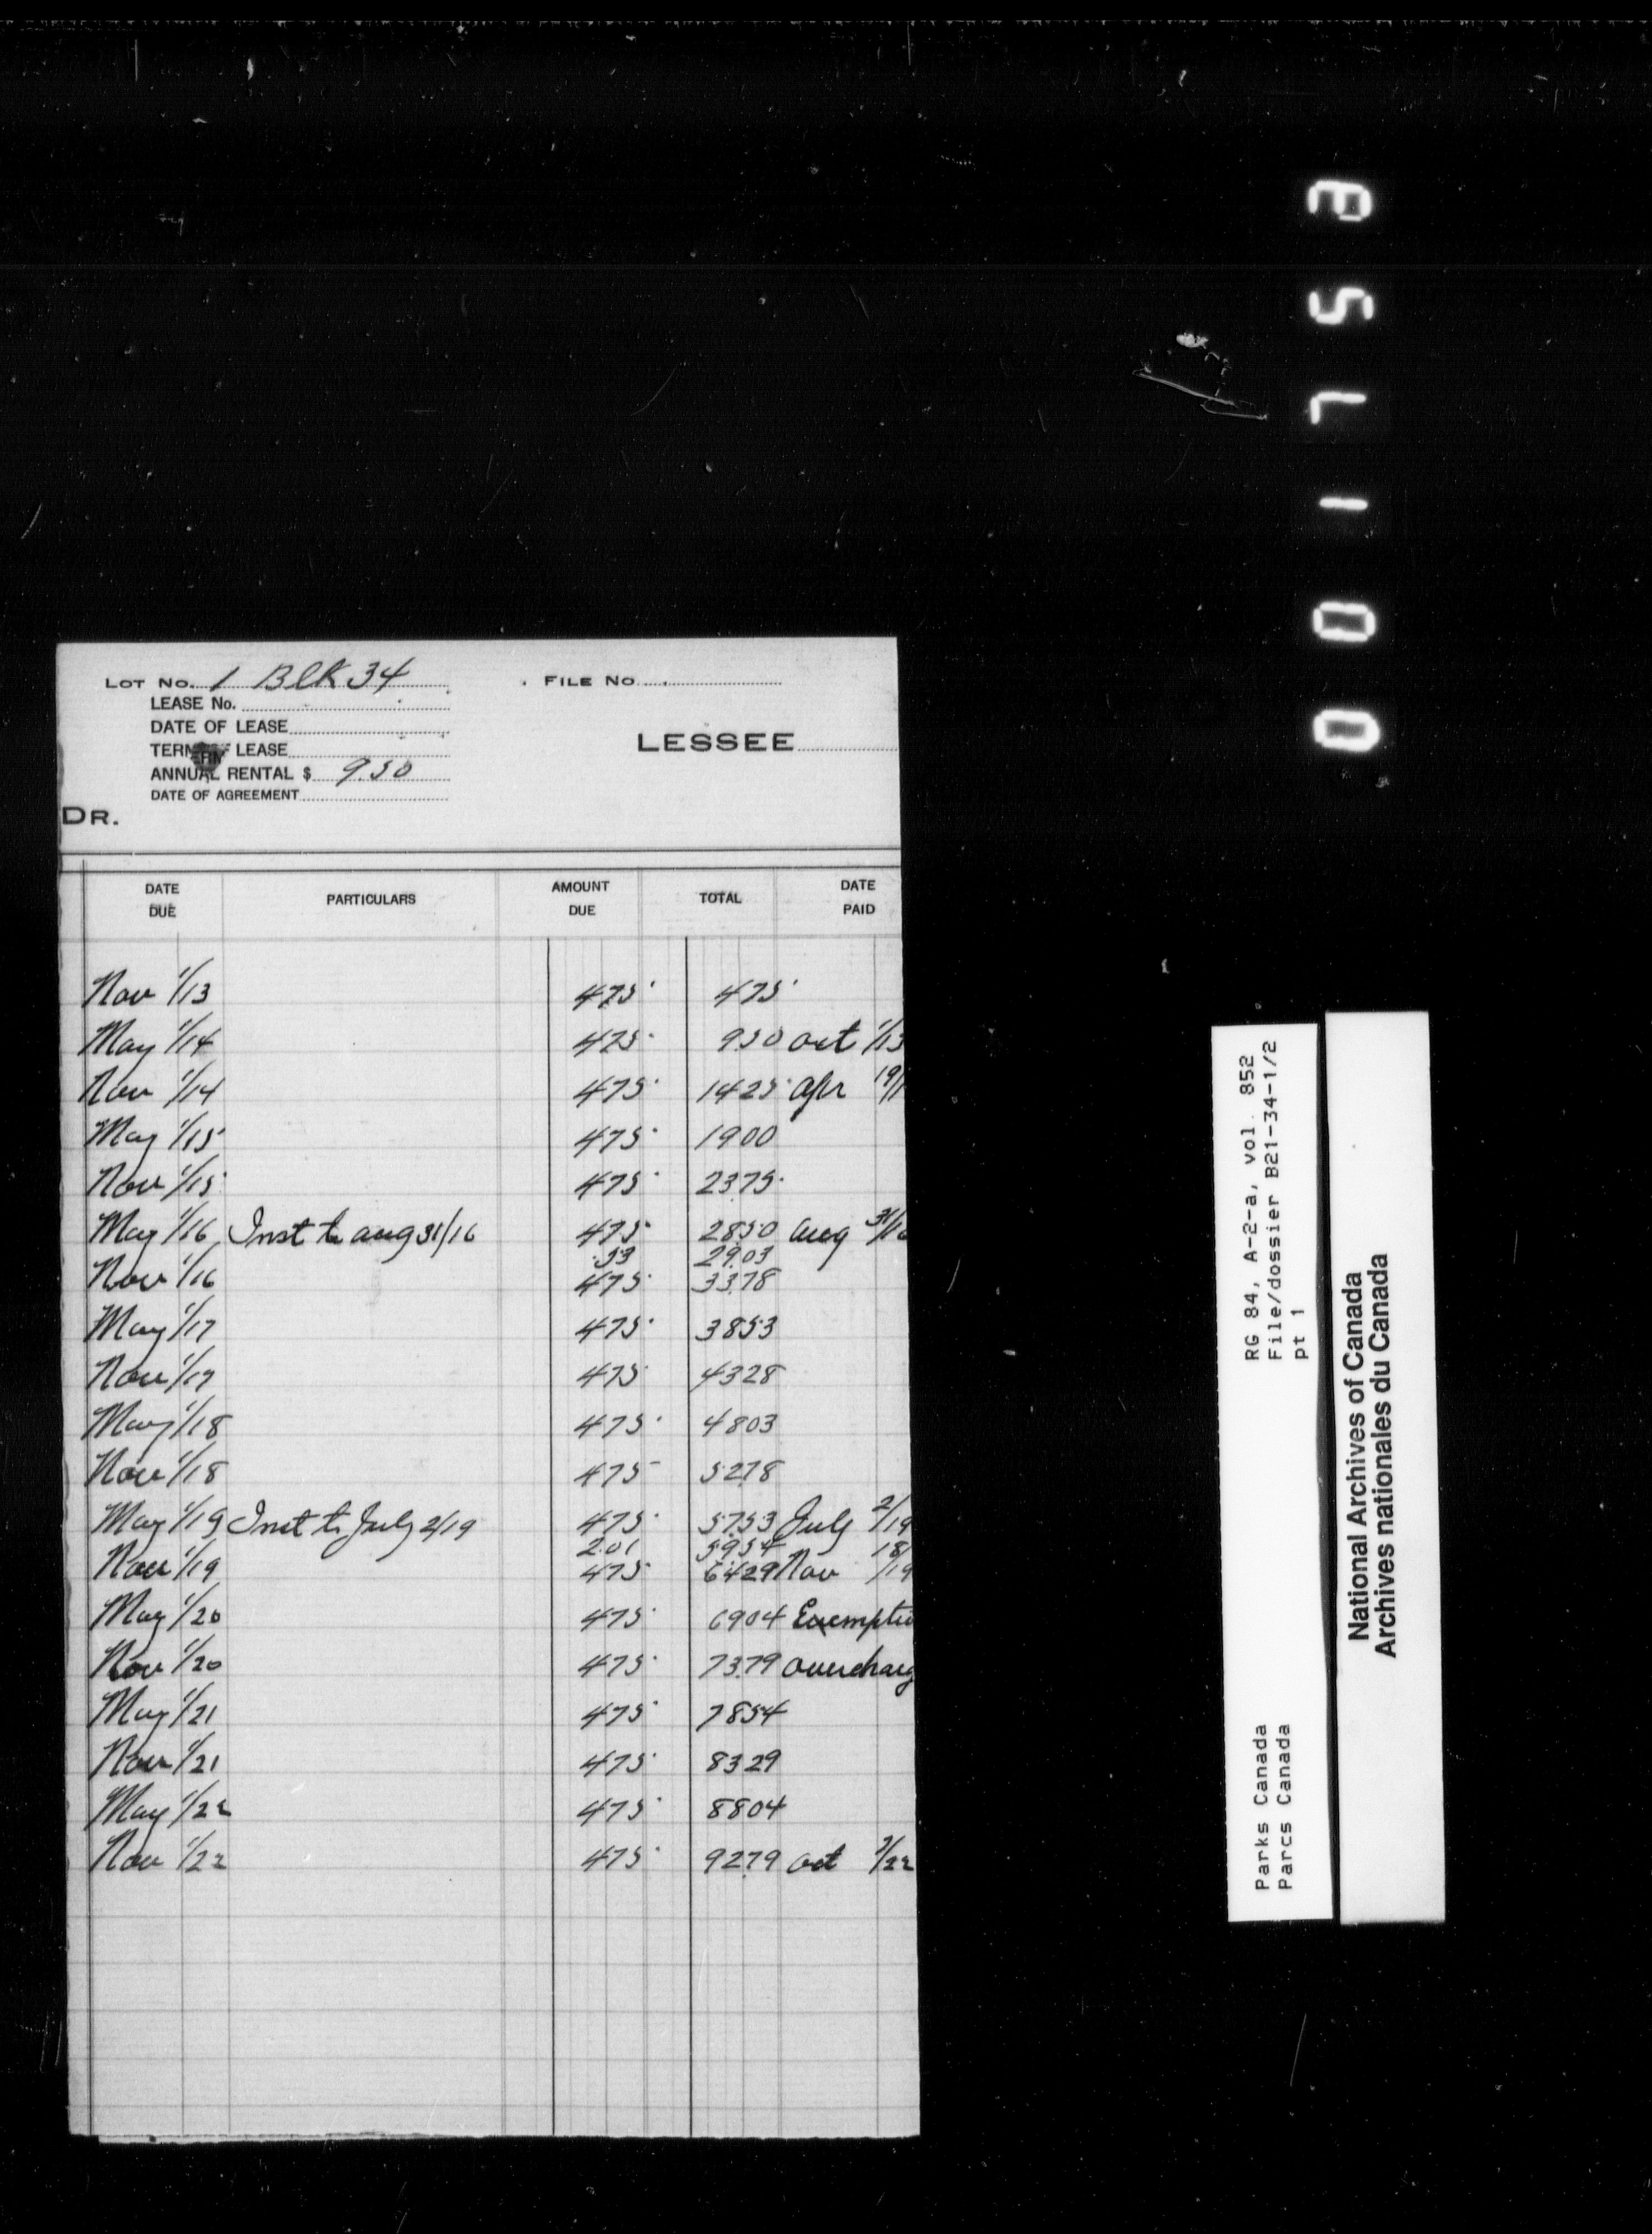 LOT NO. 1 Blk 34 FILE NO
LEASE No.
DATE OF LEASE
TERM OF LEASE
LESSEE
ANNUAL RENTAL $ 9.50
DATE OF AGREEMENT
DR.
DATE DUE PARTICULARS AMOUNT DUE TOTAL DATE PAID
Nov 1/13 475 475
May 1/14 475 950 Oct 1/13
Nov 1/14 475 1425 Apr 19/1
May 1/15 475 1900
Nov 1/15 475 2375
May 1/16 Inst to aug 31/16 475 2850 Aug 31/16
.53 29.03
Nov 1/16 475 33.78
May 1/17 475 3853
Nov 1/17 475 4328
May 1/18 475 4803
Nov 1/18 475 5278
May 1/19 Inst to July 2/19 475 5753 July 2/19
2.01 5954
Nov 1/19 475 6429 Nov 18/19
May 1/20 475 6904 Exemptio
Nov 1/20 475 7379 overcharg
May 1/21 475 7854
Nov 1/21 475 8329
May 1/22 475 8804
Nov 1/22 475 9279 Oct 2/22
001758
RG 84, A-2-a, vol. 852
File/dossier B21-34-1/2
pt 1
Parks Canada
Parcs Canada
National Archives of Canada
Archives nationales du Canada